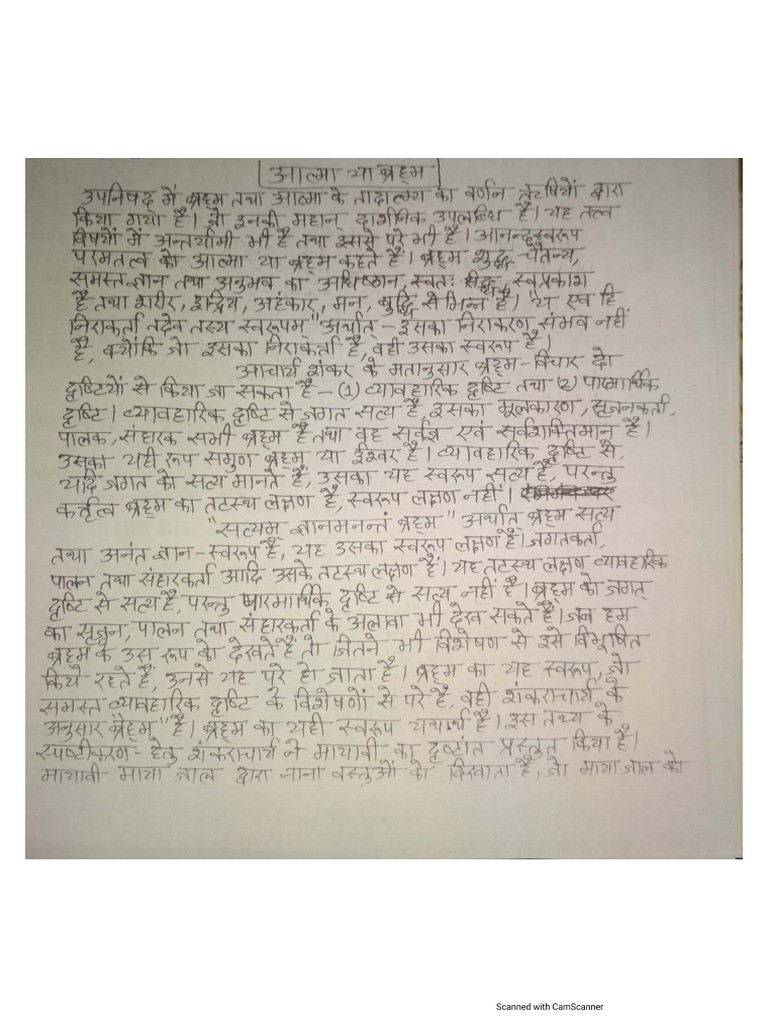 आत्मा या ब्रह्म
उपनिषद् में ब्रह्म तथा आत्मा के तादात्म्य का वर्णन ऋषियों द्वारा
किया गया है। जो इनकी महान् दार्शनिक उपलब्धि है। यह तत्व
विषयों में अन्तर्यामी भी है तथा इससे परे भी है। आनन्दस्वरूप
परमतत्व को आत्मा या ब्रह्म कहते हैं। ब्रह्म शुद्ध-चैतन्य,
समस्त ज्ञान तथा अनुभव का अधिष्ठान, स्वतः सिद्ध, स्वप्रकाश
है तथा शरीर, इन्द्रिय, अहंकार, मन, बुद्धि से भिन्न है। "य एव हि
निराकर्ता तदेव तस्य स्वरूपम्" अर्थात् - इसका निराकरण संभव नहीं
है, क्योंकि जो इसका निराकर्ता है, वही उसका स्वरूप है।
आचार्य शंकर के मतानुसार ब्रह्म-विचार दो
दृष्टियों से किया जा सकता है - (1) व्यावहारिक दृष्टि तथा (2) पारमार्थिक
दृष्टि। व्यावहारिक दृष्टि से जगत सत्य है, इसका मूलकारण, सृजनकर्ता,
पालक, संहारक सभी ब्रह्म है तथा वह सर्वज्ञ एवं सर्वशक्तिमान है।
उसका यही रूप सगुण ब्रह्म या ईश्वर है। व्यावहारिक दृष्टि से,
यदि जगत को सत्य मानते हैं, उसका यह स्वरूप सत्य है, परन्तु
कर्तृत्व ब्रह्म का तटस्थ लक्षण है, स्वरूप लक्षण नहीं।
"सत्यम् ज्ञानमनन्तं ब्रह्म" अर्थात् ब्रह्म सत्य
तथा अनंत ज्ञान-स्वरूप है, यह उसका स्वरूप लक्षण है। जगतकर्ता,
पालन तथा संहारकर्ता आदि उसके तटस्थ लक्षण हैं। यह तटस्थ लक्षण व्यावहारिक
दृष्टि से सत्य है, परन्तु पारमार्थिक दृष्टि से सत्य नहीं है। ब्रह्म को जगत्
का सृजन, पालन तथा संहारकर्ता के अलावा भी देख सकते हैं। जब हम
ब्रह्म के उस रूप को देखते हैं तो जितने भी विशेषण से इसे विभूषित
किये रहते हैं, उनसे यह परे हो जाता है। ब्रह्म का यह स्वरूप, जो
समस्त व्यावहारिक दृष्टि के विशेषणों से परे है, वही शंकराचार्य के
अनुसार "ब्रह्म" है। ब्रह्म का यही स्वरूप यथार्थ है। इस तथ्य के
स्पष्टीकरण-हेतु शंकराचार्य ने मायावी का दृष्टांत प्रस्तुत किया है।
मायावी माया जाल द्वारा नाना वस्तुओं को दिखाता है, जो माया जाल को
Scanned with CamScanner